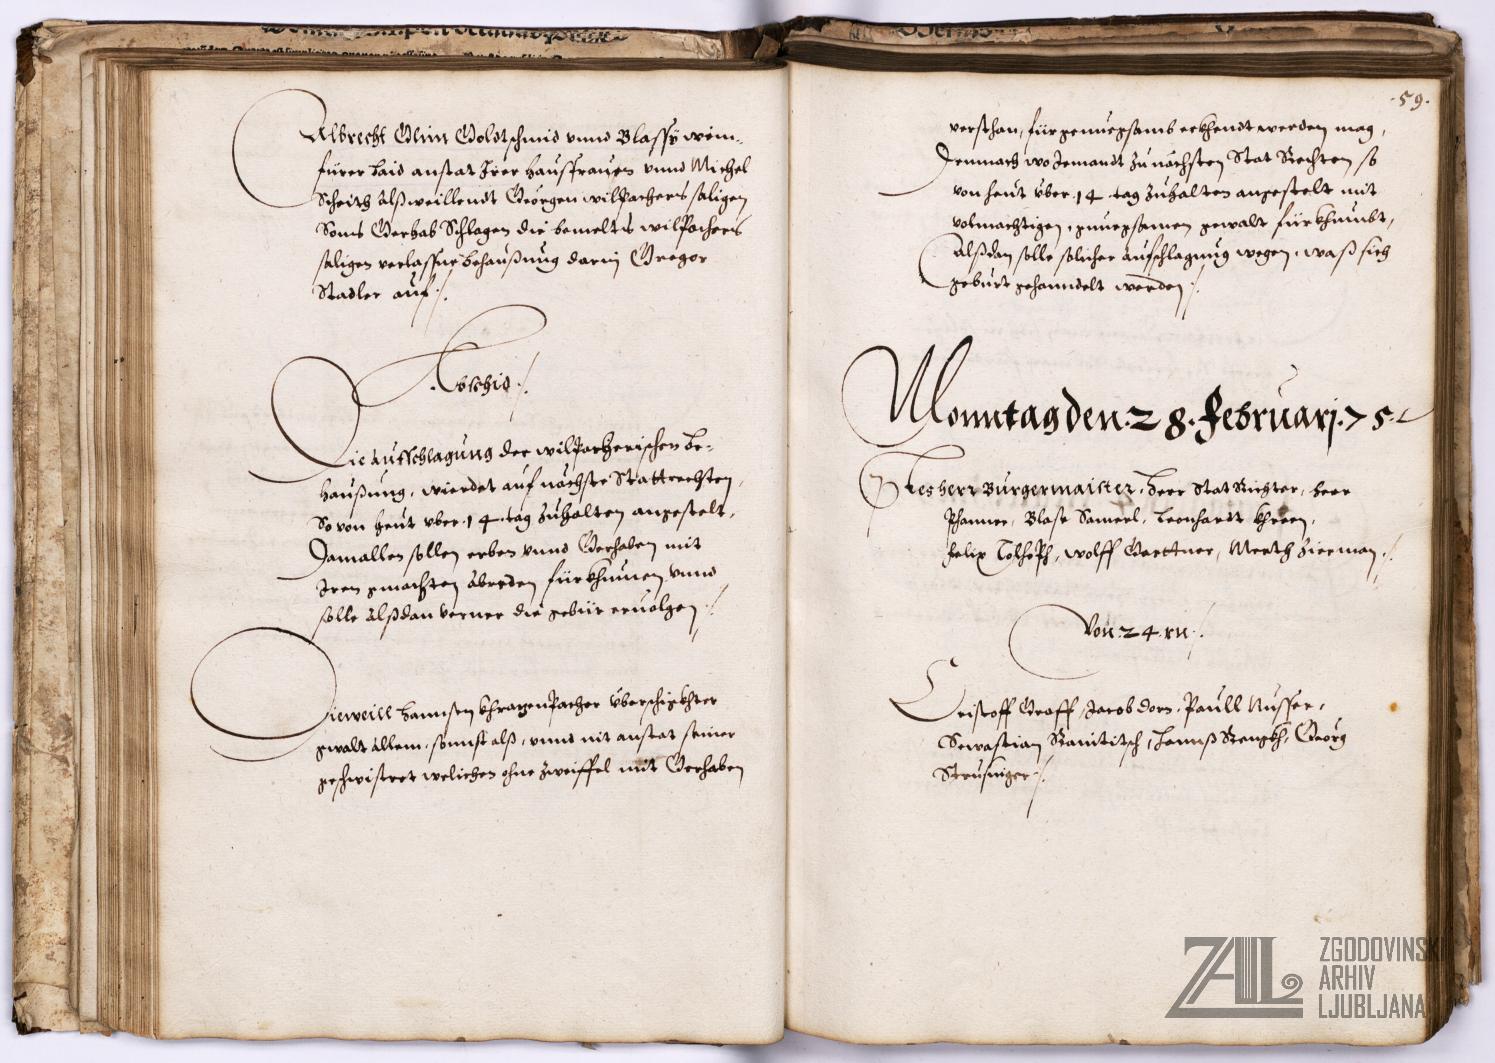 Albrecht Glim Goldtschmid vnnd Blassÿ wein-
fürer baid anstat Irer Hausfrauen vnnd Michel
Scheitz Alß weillendt Georgen wilpachers saligen
Sons Gerhab Schlagen die bemelts wilpachers
saligen verlassne behaußung darin Gregor
Stadler auf ./.
Abschid ./.
Die Aufschlagung der wilpacherischen be-
haußung, wierdet auf nächste Stattrechten,
So von heut vber .14. tag zuhalten angestelt,
Damallen sollen erben vnnd Gerhaben mit
Iren gmachten Abreden fürkhumen vnnd
solle Alßdan verner die gebür ervolgen ./.
Dieweill Hannsen khragenpacher Überschickhter
gwalt allein, sonnst alß, vnnd nit anstat seiner
geschwistret welichen ohne zweiffel mit Gerhaben
.59.
versehan, für genuegsamb erkhendt werden mag,
Demnach wo Jemandt zu nächsten Stat Rechten so
von heut vber .14. tag zuhalten angestelt mit
volmachtigen, genuegsamen gewalt fürkhumbt,
Alßdan solle solicher Aufschlagung wegen, waß sich
geburt gehanndelt werden ./.
Monntag den .28. Februarj .75.
Herr Burgermaister, Herr Stat Richter, Herr
Blase Samerl, Leonhardt khreen,
Felix wolff Gerttner, Mertth Zierman ./.
Von .24.rn ./.
Cristoff Graff, Jacob dorn, Paull Nusser,
Sewastian Ranititsch, Hannß Renckh, Georg
Strusniger ./.
ZAL
ZGODOVINSKI
ARHIV
LJUBLJANA